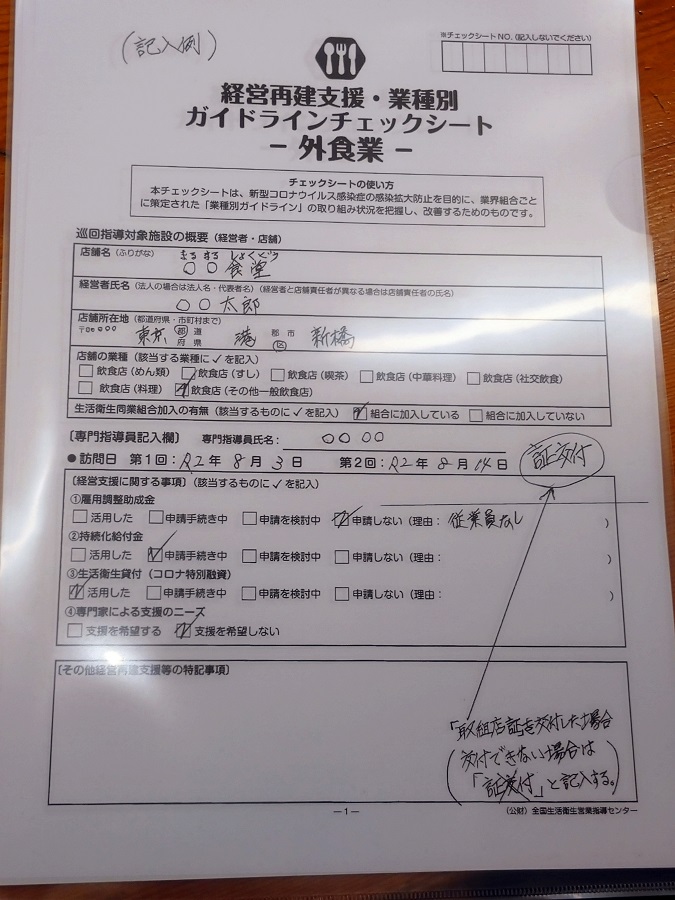 (記入例)
※チェックシートNO.(記入しないでください)
経営再建支援・業種別
ガイドラインチェックシート
− 外食業 −
チェックシートの使い方
本チェックシートは、新型コロナウイルス感染症の感染拡大防止を目的に、業界組合ごと
に策定された「業種別ガイドライン」の取り組み状況を把握し、改善するためのものです。
巡回指導対象施設の概要(経営者・店舗)
店舗名(ふりがな) まるまる しょくどう
○○食堂
経営者氏名(法人の場合は法人名・代表者名)(経営者と店舗責任者が異なる場合は店舗責任者の氏名)
○○太郎
店舗所在地(都道府県・市町村まで)
〒000000
東京 都道府県 港 郡市区 新橋
店舗の業種(該当する業種に✓を記入)
飲食店(めん類) 飲食店(すし) 飲食店(喫茶) 飲食店(中華料理) 飲食店(社交飲食)
飲食店(料理) ✓飲食店(その他一般飲食店)
生活衛生同業組合加入の有無(該当するものに✓を記入) ✓組合に加入している 組合に加入していない
〔専門指導員記入欄〕 専門指導員氏名: ○○○○
●訪問日 第1回:R2年8月3日 第2回:R2年8月14日
証交付
〔経営支援に関する事項〕(該当するものに✓を記入)
①雇用調整助成金
活用した 申請手続き中 申請を検討中 ✓申請しない(理由:従業員なし )
②持続化給付金
活用した ✓申請手続き中 申請を検討中 申請しない(理由: )
③生活衛生貸付(コロナ特別融資)
✓活用した 申請手続き中 申請を検討中 申請しない(理由: )
④専門家による支援のニーズ
支援を希望する ✓支援を希望しない
〔その他経営再建支援等の特記事項〕
「取組店証」を交付した場合
(交付できない場合は
「証交付」と記入する。)
−1−
(公財)全国生活衛生営業指導センター